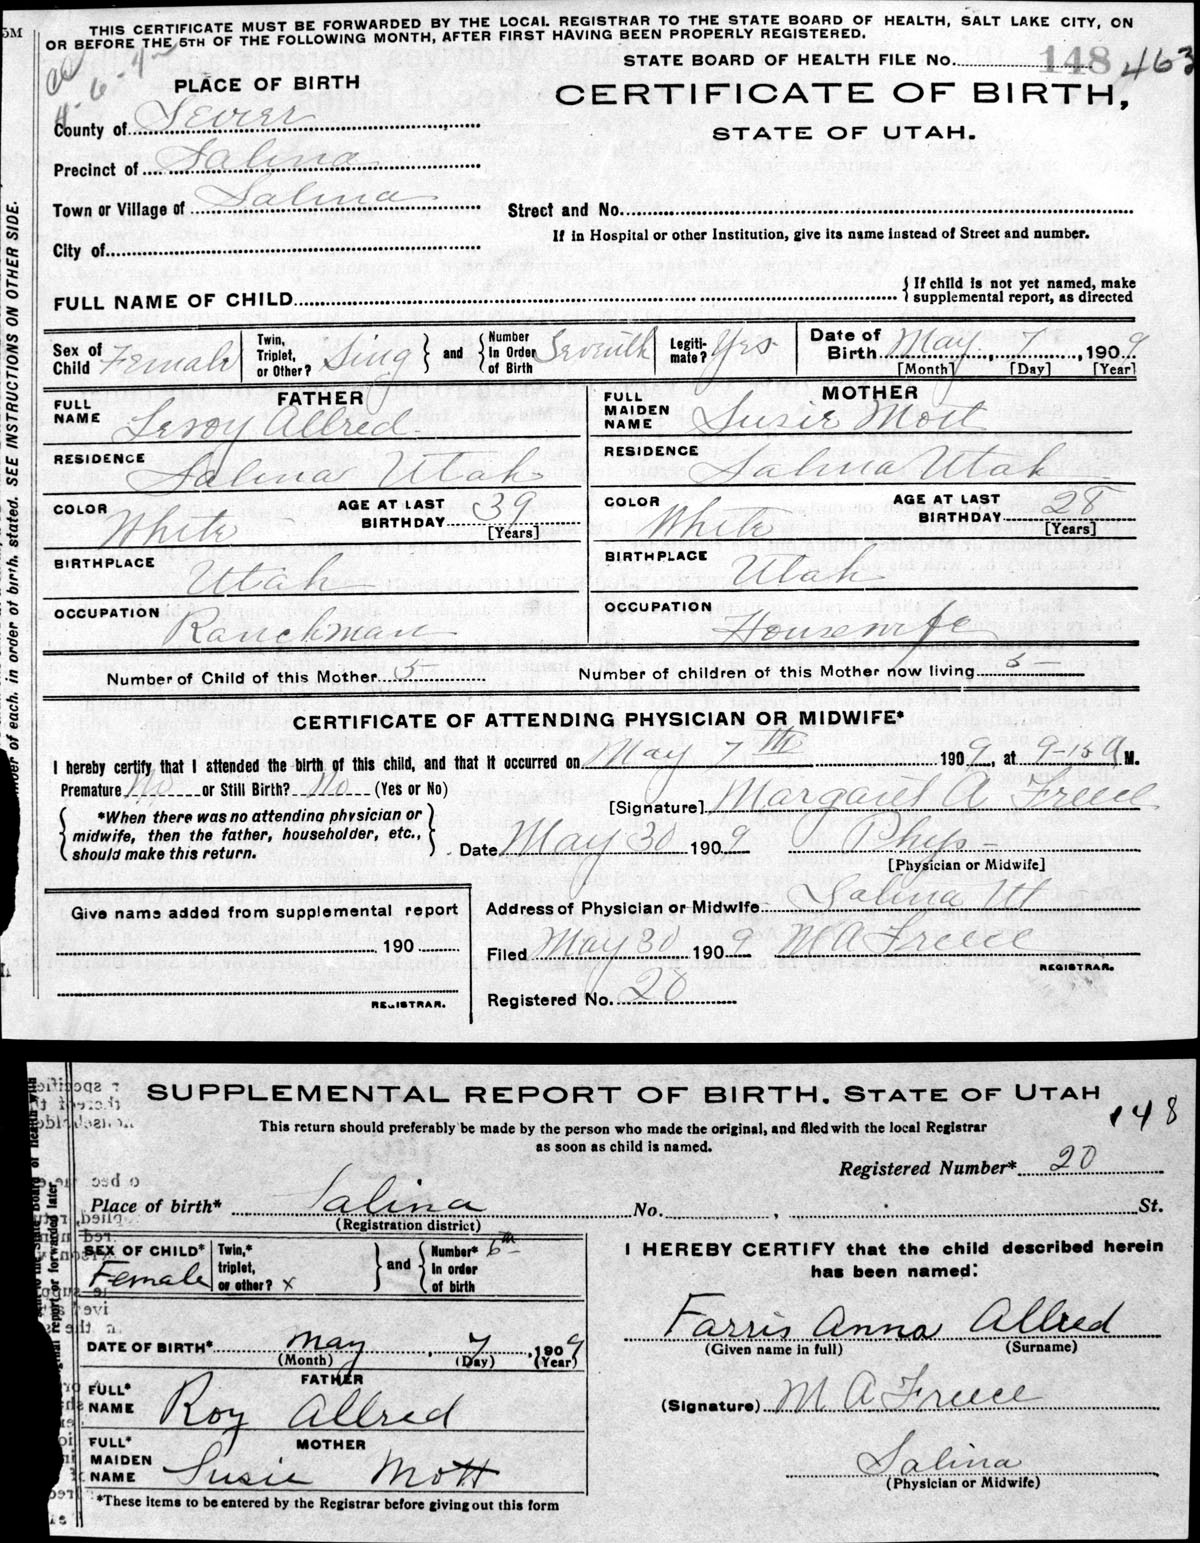 THIS CERTIFICATE MUST BE FORWARDED BY THE LOCAL REGISTRAR TO THE STATE BOARD OF HEALTH, SALT LAKE CITY, ON
OR BEFORE THE 5TH OF THE FOLLOWING MONTH, AFTER FIRST HAVING BEEN PROPERLY REGISTERED.
5M
STATE BOARD OF HEALTH FILE No. 148 463
PLACE OF BIRTH
CERTIFICATE OF BIRTH,
STATE OF UTAH.
County of Sevier
Precinct of Salina
Town or Village of Salina
Street and No.
City of
If in Hospital or other Institution, give its name instead of Street and number.
FULL NAME OF CHILD
{ If child is not yet named, make
supplemental report, as directed
Sex of Child Female
Twin, Triplet, or Other? Sing } and { Number In Order of Birth Seventh
Legiti-mate? Yes
Date of Birth May, 7, 1909
[Month] [Day] [Year]
FATHER
FULL NAME Leroy Allred
RESIDENCE Salina Utah
COLOR White
AGE AT LAST BIRTHDAY 39 [Years]
BIRTHPLACE Utah
OCCUPATION Ranchman
MOTHER
FULL MAIDEN NAME Susie Mott
RESIDENCE Salina Utah
COLOR White
AGE AT LAST BIRTHDAY 28 [Years]
BIRTHPLACE Utah
OCCUPATION Housewife
Number of Child of this Mother 5 Number of children of this Mother now living 5
CERTIFICATE OF ATTENDING PHYSICIAN OR MIDWIFE*
I hereby certify that I attended the birth of this child, and that it occurred on May 7th 1909, at 9-15 A M.
Premature No or Still Birth? No (Yes or No)
[Signature] Margaret A Freece
{ *When there was no attending physician or
midwife, then the father, householder, etc.,
should make this return. }
Date May 30 1909 Phys-
[Physician or Midwife]
Give name added from supplemental report
190
REGISTRAR.
Address of Physician or Midwife Salina Ut
Filed May 30 1909 M A Freece
REGISTRAR.
Registered No. 20
of each, in order of birth, stated. SEE INSTRUCTIONS ON OTHER SIDE.
SUPPLEMENTAL REPORT OF BIRTH. STATE OF UTAH
148
This return should preferably be made by the person who made the original, and filed with the local Registrar
as soon as child is named.
Registered Number* 20
Place of birth* Salina No. , St.
(Registration district)
SEX OF CHILD* Female
Twin,* triplet, or other? x } and { Number* In order of birth 6th
DATE OF BIRTH* May, 7, 1909
(Month) (Day) (Year)
FATHER
FULL* NAME Roy Allred
MOTHER
FULL* MAIDEN NAME Susie Mott
*These items to be entered by the Registrar before giving out this form
I HEREBY CERTIFY that the child described herein
has been named:
Farris Anna Allred
(Given name in full) (Surname)
(Signature) M A Freece
Salina
(Physician or Midwife)